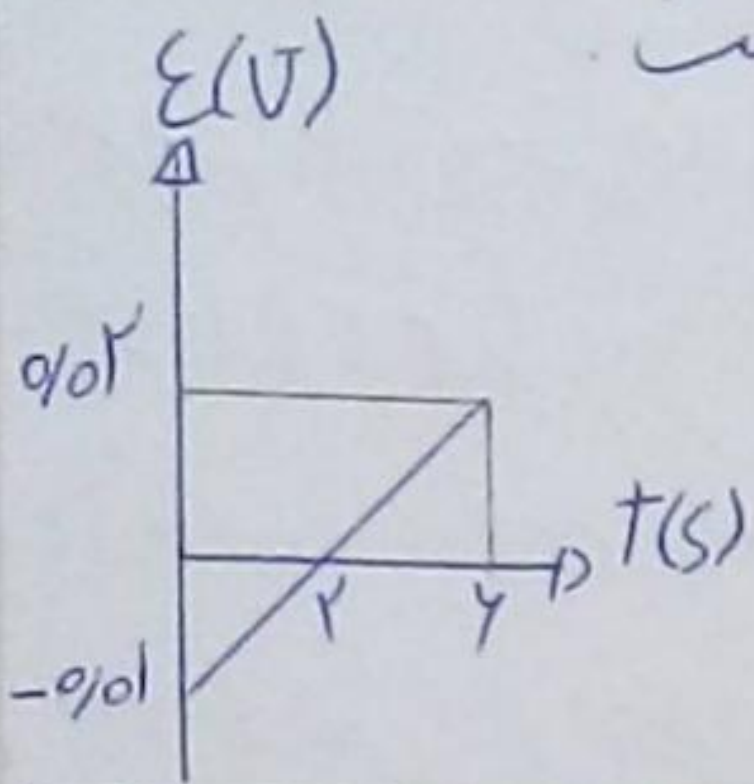 ε(V)
۰/۰۲
t(s)
۲
۶
-۰/۰۱